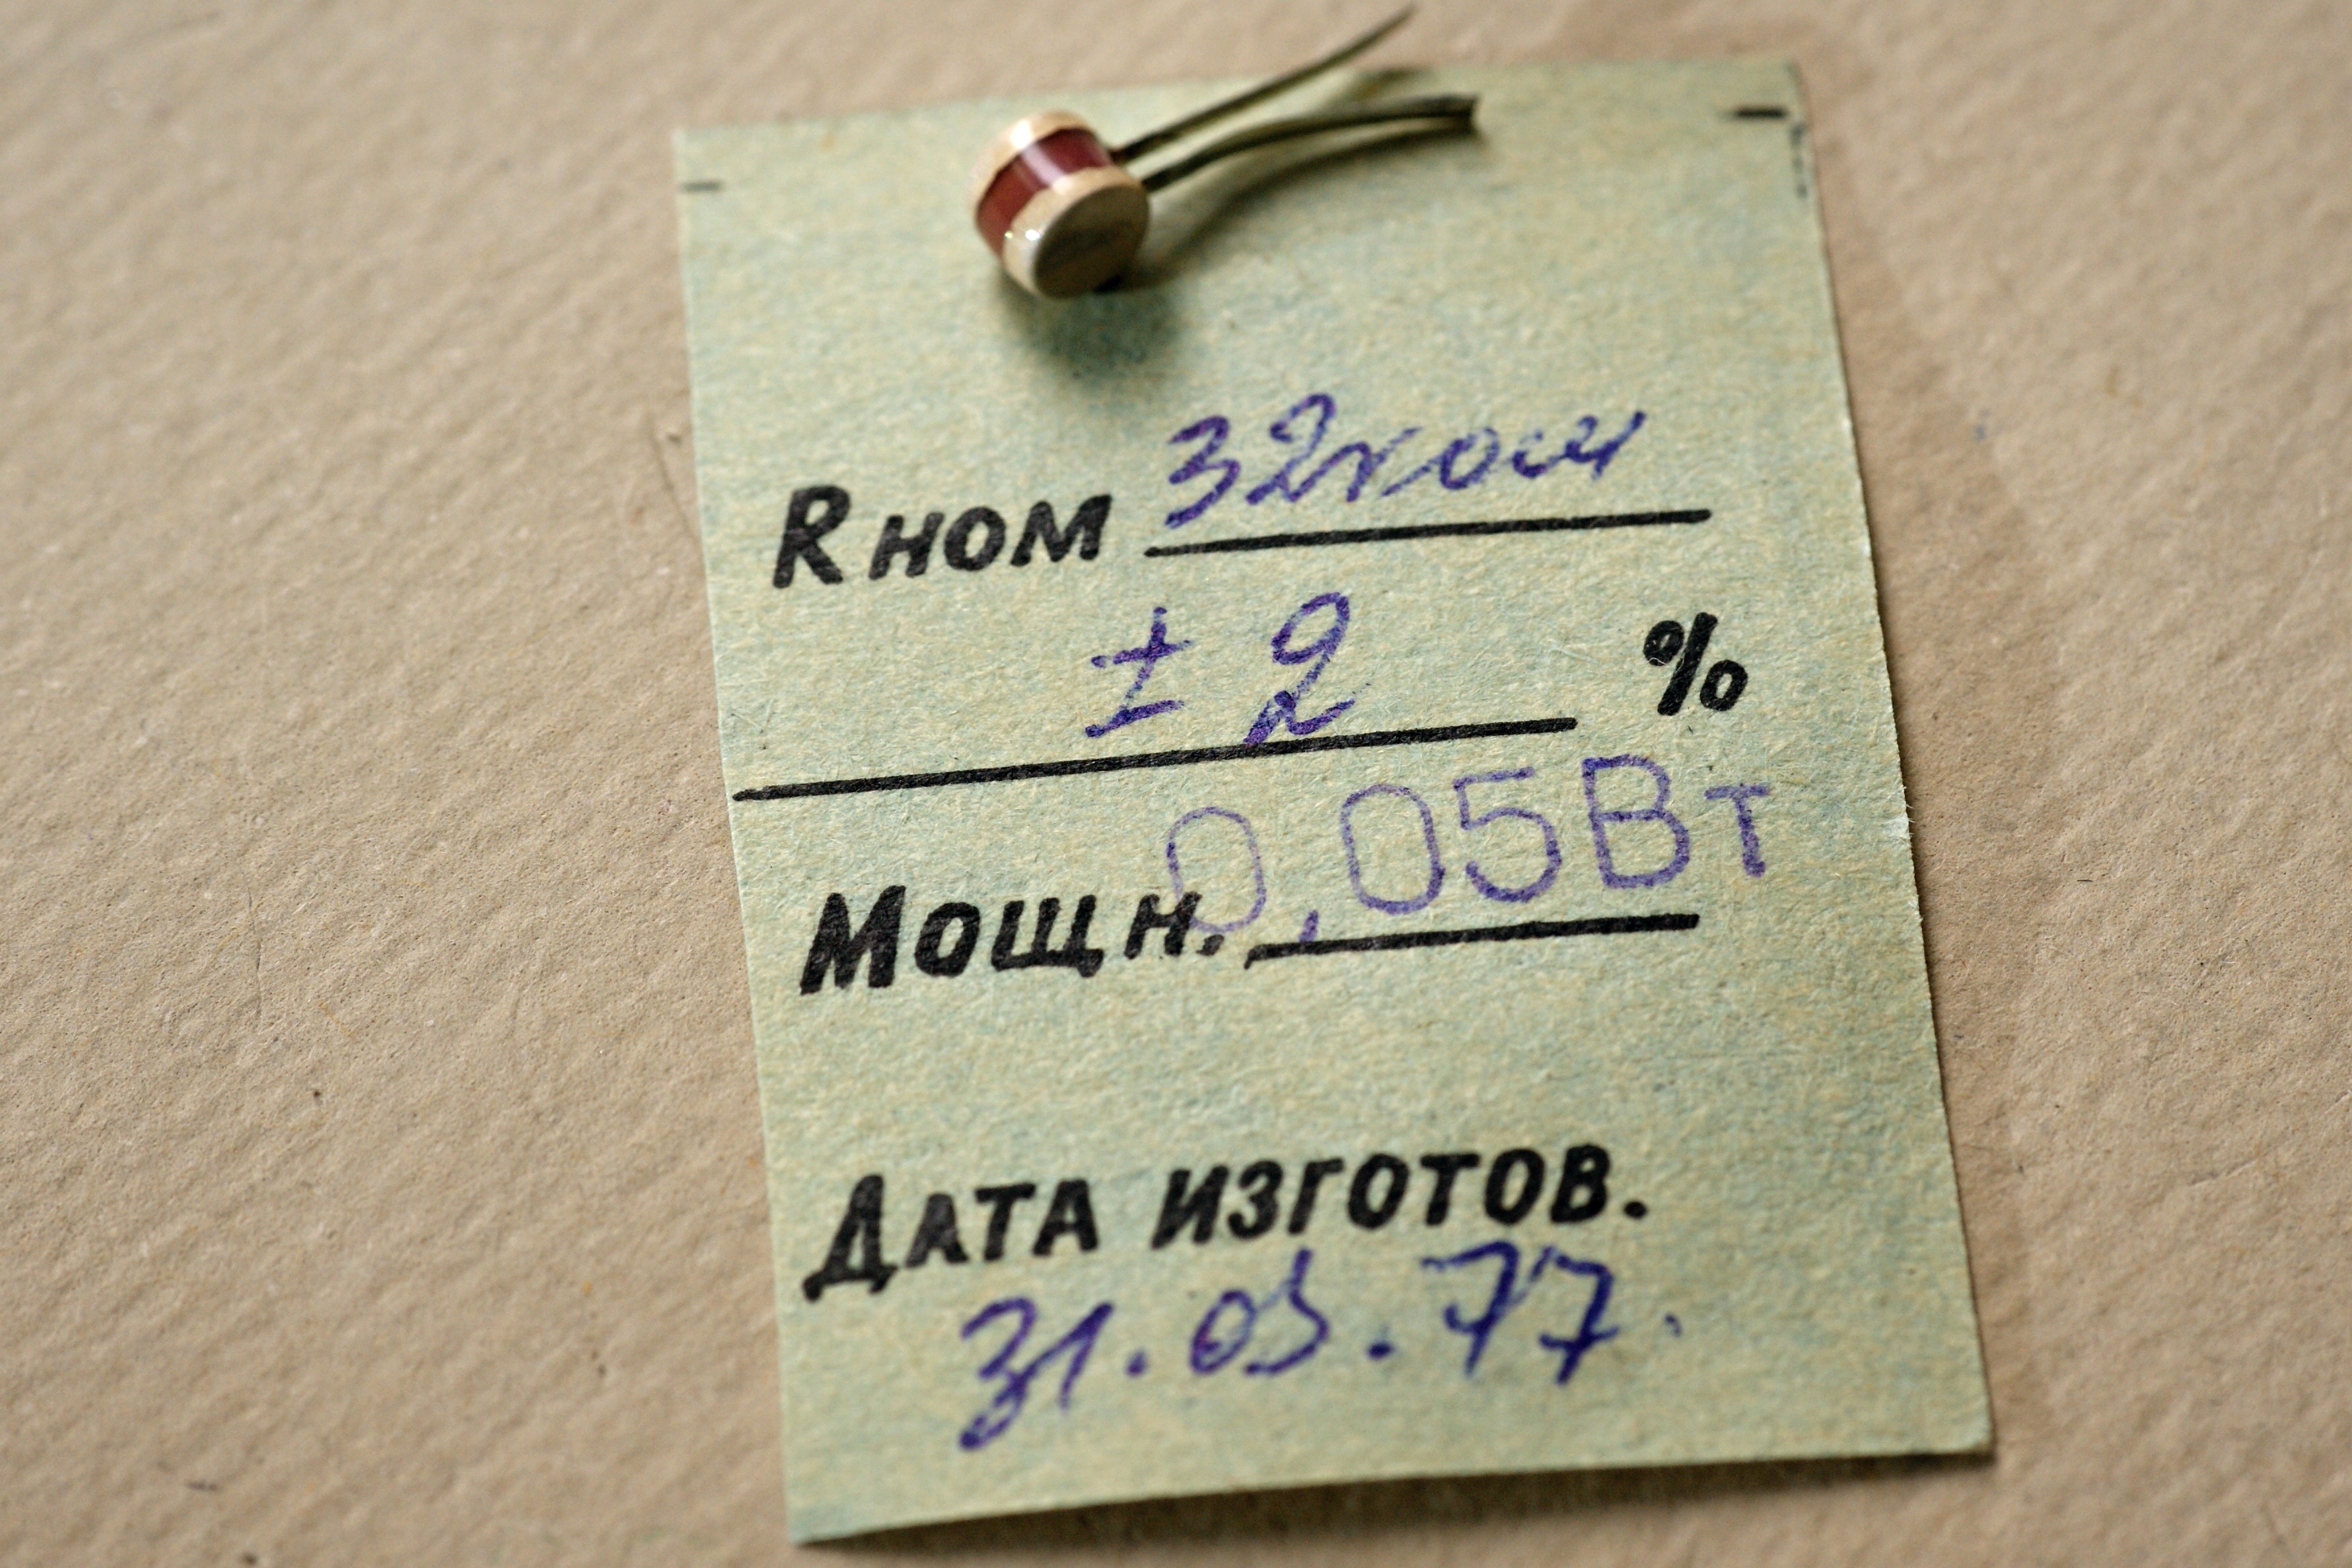 Rном 32ком
± 2 %
Мощн. 0,05Вт
Дата изготов.
31.03.77.